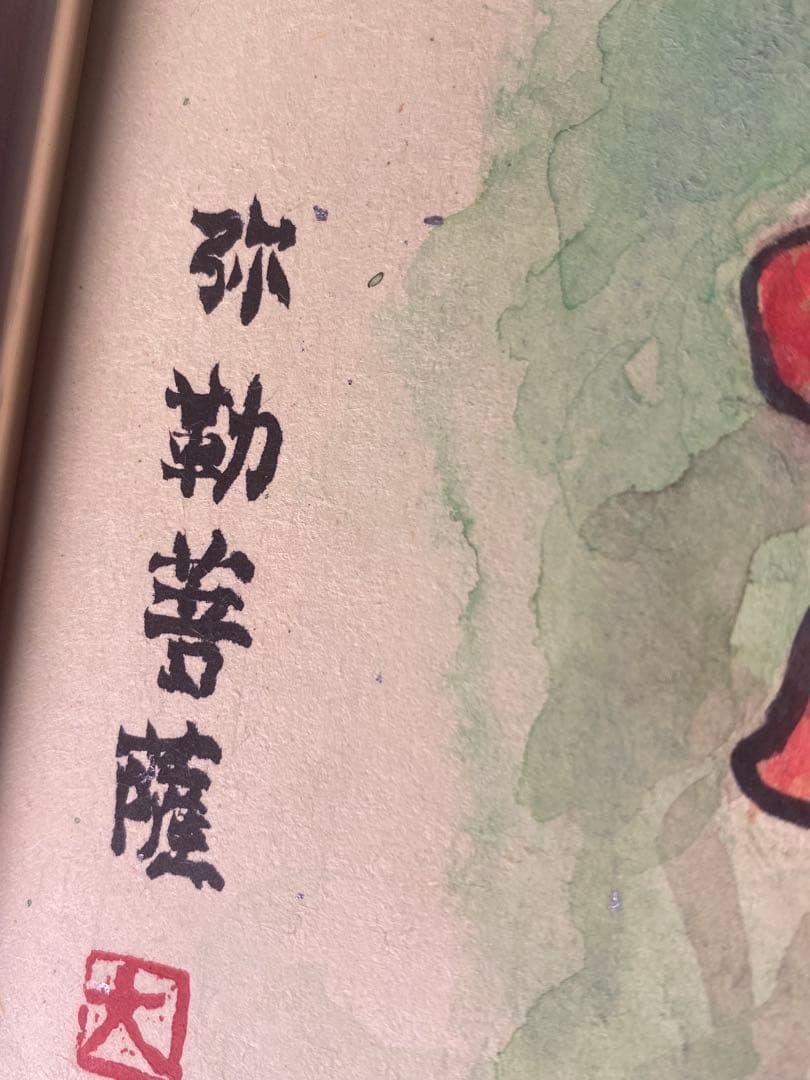 弥勒菩薩
大